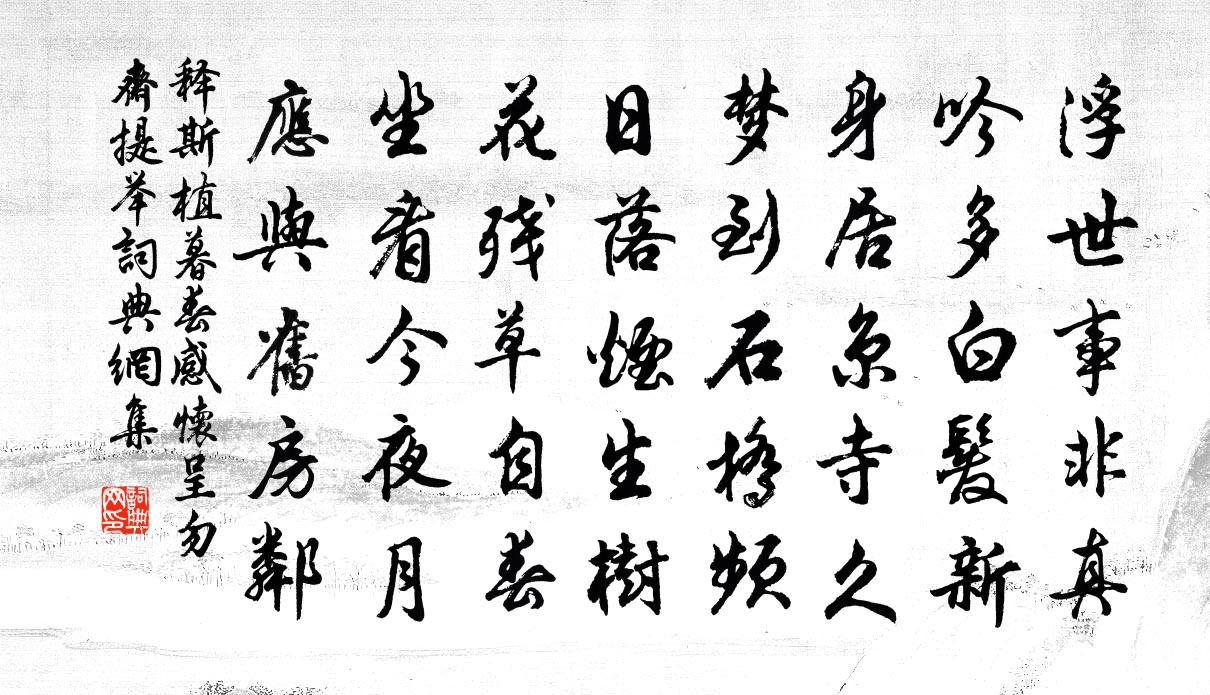 浮世事非真
吟多白髮新
身居京寺久
梦到石橋頻
日落煙生樹
花残草自春
坐看今夜月
應與舊房鄰
释斯植暮春感懷呈勿
齋提举詞典網集
詞典网印